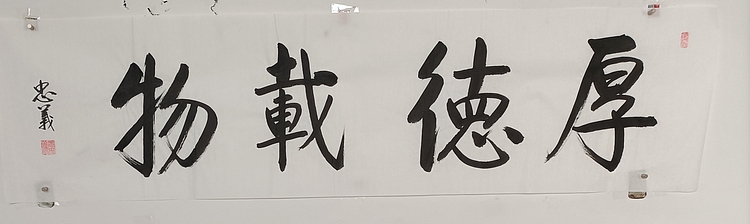 厚德載物
忠義